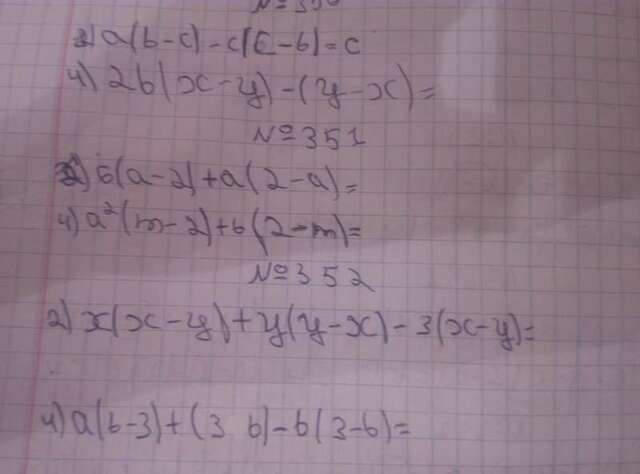 № 350
3) a(b-c)-c(c-b)=c
4) 2b(x-y)-(y-x)=
№ 351
2) 6(a-2)+a(2-a)=
4) a²(m-2)+b(2-m)=
№ 352
2) x(x-y)+y(y-x)-3(x-y)=
4) a(b-3)+(3 b)-b(3-b)=